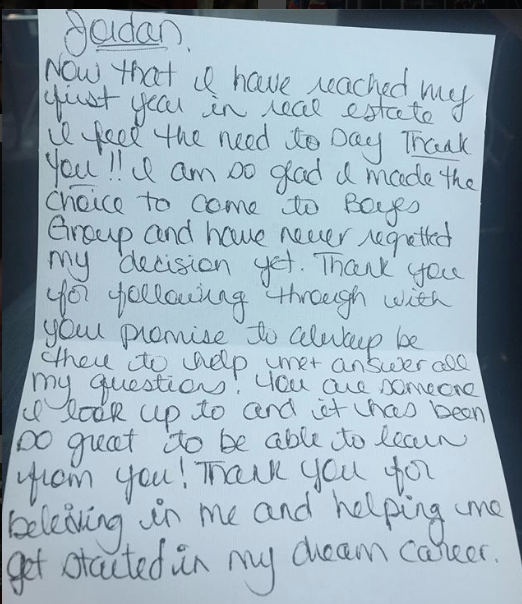 Jordan,
Now that I have reached my
first year in real estate
I feel the need to Day Thank
You!! I am so glad I made the
choice to come to Boyes
Group and have never regretted
my decision yet. Thank you
for following through with
your promise to always be
there to help me + answer all
my questions! You are someone
I look up to and it has been
so great to be able to learn
from you! Thank you for
beleiving in me and helping me
get started in my dream career.